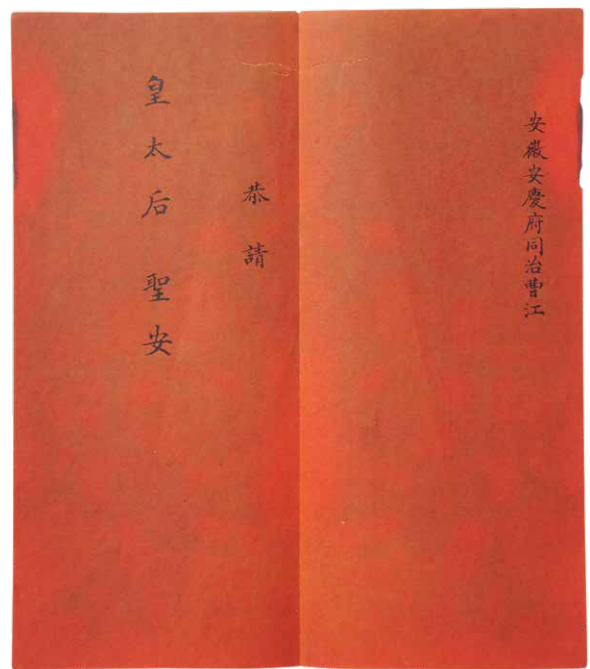 安徽安慶府同治曹江
恭請
皇太后聖安